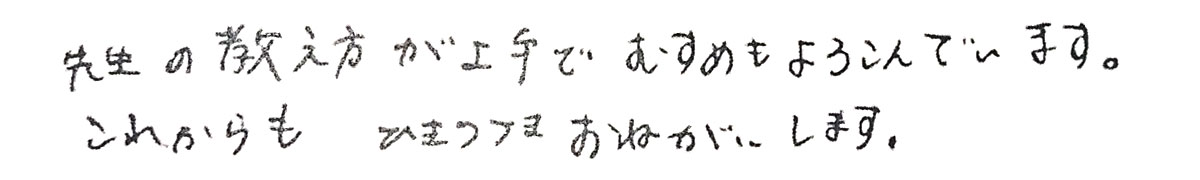 先生の教え方が上手でむすめもよろこんでいます。
これからも ひきつづき おねがいします。